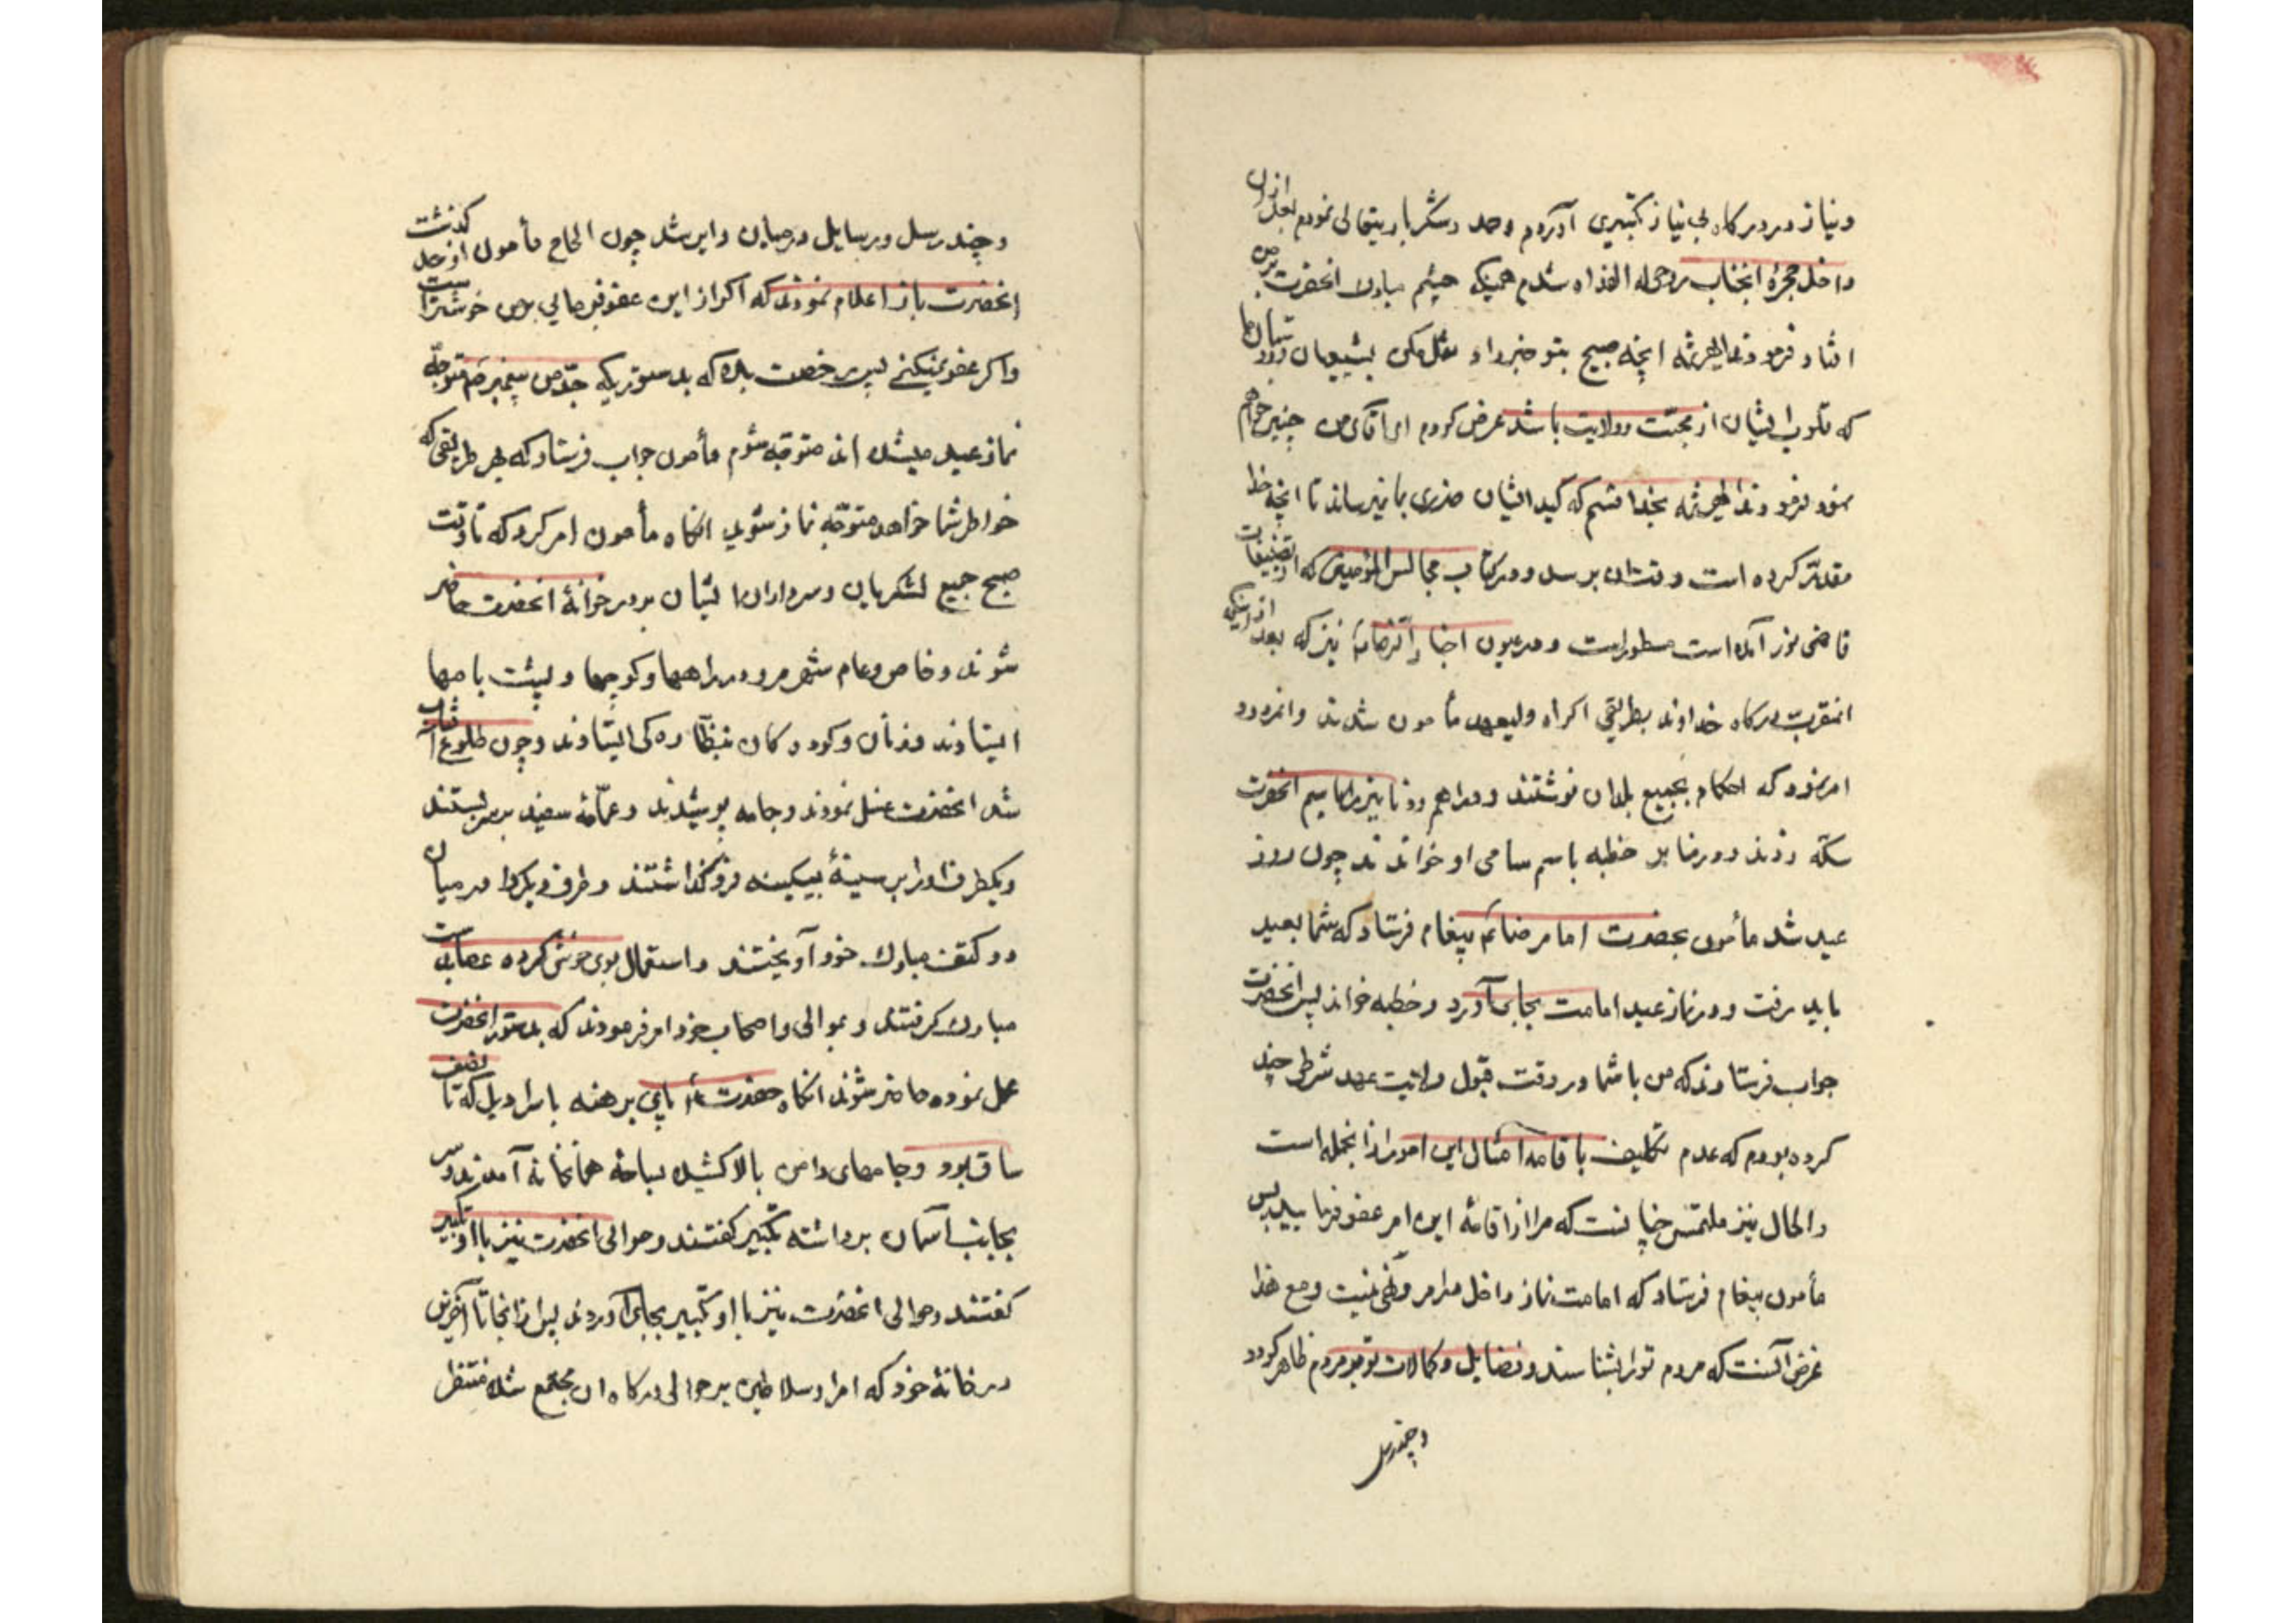 ونیاز در درکاه بی نیاز کتیری آوردم وحمد وشکر باریتعالی نمودم بعد ازان
داخل حجرهٔ انجناب روحی له الفداه شدم همینکه چشم مبارک انحضرت برمن
افتاد فرمودند ایخه صبح بتو خبر داد نقل مکن بشیعیان
که قلوب ایشان از محبّت وولایت باشد عرض کردم ای آقای من چنین خواهم
نمود فرمودند بخدا قسم که کید ایشان ضرری بما نمیرساند تا انچه خدا
مقدّر کرده است وقتش برسد ودر کتاب مجالس المؤمنین که از تصنیفات
قاضی نور الله است مسطور است ودر عیون اخبار الرضا نیز که بعد از اینکه
انمقرب درکاه خداوند بطریق اکراه ولیعهد مأمون شدند وانمردود
امر نمود که احکام بجمیع بلدان نوشتند ودراهم ودنانیر را باسم انحضرت
سکّه زدند ودر منابر خطبه باسم سامی او خواندند چون روز
عید شد مأمون بحضرت امام رضا پیغام فرستاد که شما بعید
باید رفت ودر نماز عید امامت بجای آورد وخطبه خواند پس انحضرت
جواب فرستادند که من با شما در وقت قبول ولایت عهد شرطی چند
کرده بودم که عدم تکلیف باقامه امثال این امور از انجمله است
والحال نیز ملتمس چنانست که مرا از اقامهٔ این امر عفو فرمایید پس
مأمون پیغام فرستاد که امامت نماز داخل در امر ونهی نیست ومع هذا
غرض آنست که مردم ترا بشناسند وفضایل وکمالات تو بر مردم ظاهر کردد
وچند رسل
وچند رسل ورسایل در میان دایر شد چون الحاح مأمون از حد کذشت
انحضرت باز اعلام نمودند که اکر از این عفو فرمایی بر من خوشتر است
واکر عفو نمیکنی پس رخصت بده که بدستوریکه جدّ من پیغمبر متوجّه
نماز عید میشده اند متوجّه شوم مأمون جواب فرستاد که بهر طریقی که
خواطر شما خواهد متوجّه نماز شوید انکاه مأمون امر کرد که تا وقت
صبح جمیع لشکریان وسرداران ایشان بر در خوانهٔ انحضرت حاضر
شوند وخاص وعام شهر مرو در راهها وکوچها وپشت بامها
ایستادند وزنان وکودکان بنظّاره کی ایستادند وچون طلوع آفتاب
شد انحضرت غسل نمودند وجامه پوشیدند وعمّامهٔ سفید بر سر بستند
ویکطرف اورا بر سینهٔ بیکینه فروکذاشتند وطرف دیکر را در میان
دو کتف مبارک خود آویختند واستعمال بوی خوش کرده عصا بدست
مبارک کرفتند وبموالی واصحاب خود امر فرمودند که بدستور انحضرت
عمل نموده حاضر شوند انکاه حضرت با پای برهنه با سراویل که تا نصف
ساق بود وجامهای دامن بالا کشیده بساحهٔ همانخانه آمدند وسر
بجانب آسمان برداشته تکبیر کفتند وموالی انحضرت نیز با او تکبیر
کفتند وموالی انحضرت نیز با او تکبیر بجای آوردند پس از انجا تا آخرین
در خانهٔ خود که امرا وسلاطین بر حوالی درکاه ان مجتمع شده منتظر